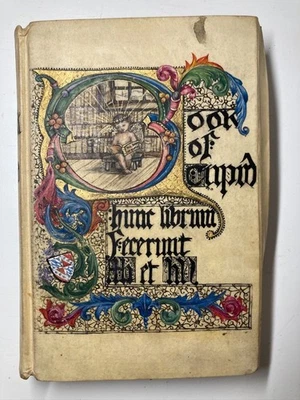 Book
of
Cupid
hunc librum
fecerunt
et